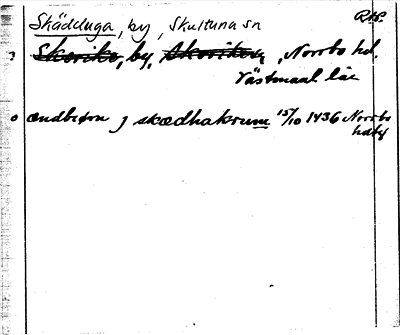 Skädduga, by, Skultuna sn RAp.
3 Skerike, by, Skerike sn, Norrbo hd.
Västmanl. län
0 ændbiorn j skædhakrum 15/10 1436 Norrbo
hdbf